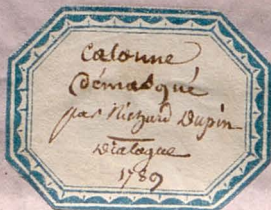 Calonne
démasqué
par Richard Dupin
Dialogue
1789